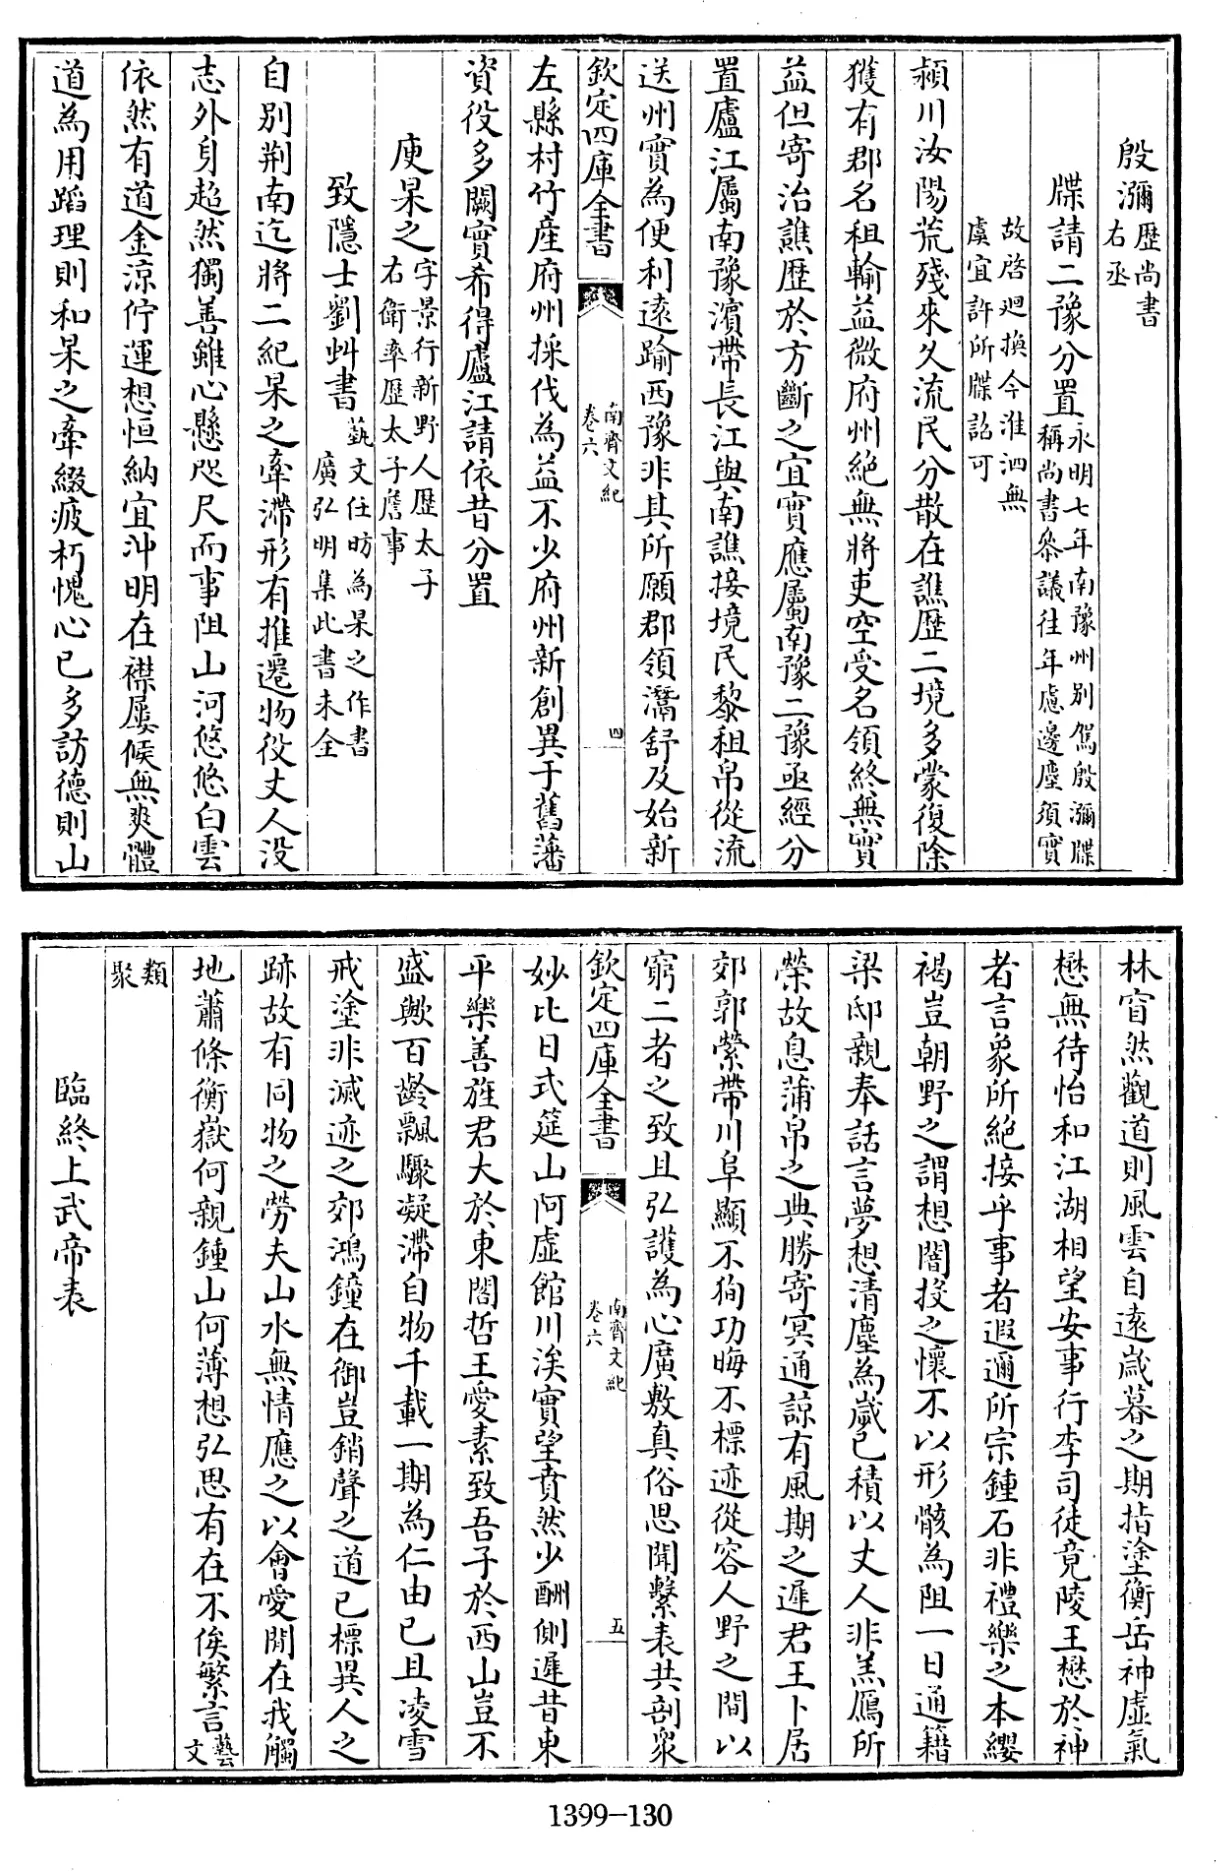 殷瀰歷尚書
右丞
牒請二豫分置永明七年南豫州別駕殷瀰牒
稱尚書參議往年慮邊塵須實
故啓迴換今淮泗無
虞宜許所牒詔可
潁川汝陽荒殘來久流民分散在譙歷二境多蒙復除
獲有郡名租輸益微府州絶無將吏空受名領終無實
益但寄治譙歷於方斷之宜實應屬南豫二豫亟經分
置廬江屬南豫濱帶長江與南譙接境民黎租帛從流
送州實為便利遠踰西豫非其所願郡領灊舒及始新
欽定四庫全書
南齊文紀
卷六
四
左縣村竹産府州採伐為益不少府州新創異于舊藩
資役多闕實希得廬江請依昔分置
庾杲之字景行新野人歷太子
右衛率歷太子詹事
致隱士劉虯書藝文任昉為杲之作書
廣弘明集此書未全
自別荆南迄將二紀杲之牽滯形有推遷物役丈人没
志外身超然獨善雖心懸咫尺而事阻山河悠悠白雲
依然有道金涼佇運想恒納宜沖明在襟屢候無爽體
道為用蹈理則和杲之牽綴疲朽愧心已多訪德則山
林窅然觀道則風雲自遠歲暮之期指塗衡岳神虛氣
懋無待怡和江湖相望安事行李司徒竟陵王懋於神
者言象所絶接乎事者遐邇所宗鍾石非禮樂之本纓
褐豈朝野之謂想闇投之懷不以形骸為阻一日通籍
梁邸親奉話言夢想清塵為歲已積以丈人非羔鴈所
榮故息蒲帛之典勝寄冥通諒有風期之遲君王卜居
郊郭縈帶川阜顯不徇功晦不標迹從容人野之間以
窮二者之致且弘護為心廣敷真俗思聞繫表共剖衆
欽定四庫全書
南齊文紀
卷六
五
妙比日式筵山阿虛館川涘實望賁然少酬側遲昔東
平樂善旌君大於東閤哲王愛素致吾子於西山豈不
盛歟百齡飄驟凝滯自物千載一期為仁由已且凌雪
戒塗非滅迹之郊鴻鐘在御豈銷聲之道已標異人之
跡故有同物之勞夫山水無情應之以會愛閒在我觸
地蕭條衡嶽何親鍾山何薄想弘思有在不俟繁言藝
文
類
聚
臨終上武帝表
1399-130